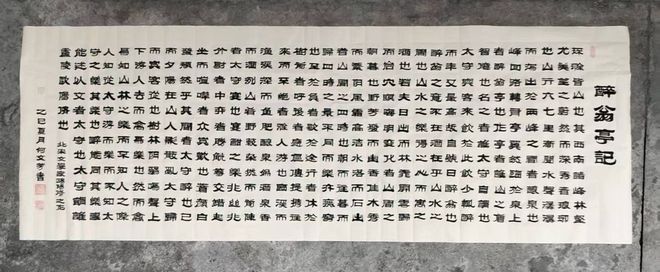 醉翁亭記
環滁皆山也其西南諸峰林壑
尤美望之蔚然而深秀者琅琊
也山行六七里漸聞水聲潺潺
而瀉出於兩峰之間者釀泉也
峰回路轉有亭翼然臨於泉上
者醉翁亭也作亭者誰山之僧
智僊也名之者誰太守自謂也
太守與客來飲於此飲少輒醉
而年又最高故自號曰醉翁也
醉翁之意不在酒在乎山水之
間也山水之樂得之心而寓之
酒也若夫日出而林霏開雲歸
而岩穴暝晦明變化者山間之
朝暮也野芳發而幽香佳木秀
而繁陰風霜高潔水落而石出
者山間之四時也朝而往暮而
歸四時之景不同而樂亦無窮
也至於負者歌於途行者休於
樹前者呼後者應傴僂提攜往
來而不絕者滁人遊也臨溪而
漁溪深而魚肥釀泉為酒泉香
而酒洌山肴野蔌雜然而前陳
者太守宴也宴酣之樂非絲非
竹射者中弈者勝觥籌交錯起
坐而喧嘩者眾賓歡也蒼顏白
髮頹然乎其間者太守醉也已
而夕陽在山人影散亂太守歸
而賓客從也樹林陰翳鳴聲上
下遊人去而禽鳥樂也然而禽
鳥知山林之樂而不知人之樂
人知從太守遊而樂而不知太
守之樂其樂也醉能同其樂醒
能述以文者太守也太守謂誰
廬陵歐陽修也
北宋文學家歐陽修之句
乙巳夏月何文芳書